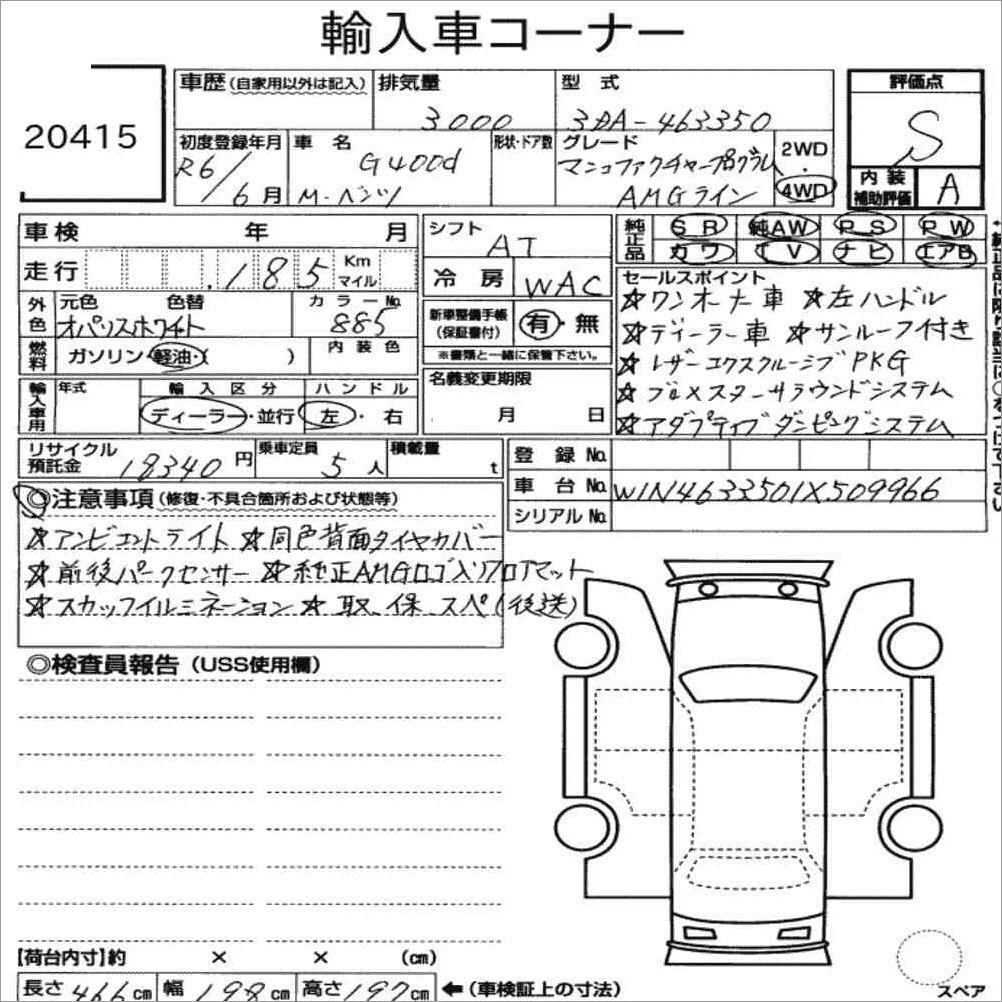 輸入車コーナー
20415
車歴(自家用以外は記入)
排気量
3000
型式
3DA-463350
評価点
S
初度登録年月
R6/6月
車名
G400d
M・ベンツ
形状・ドア数
グレード
マニュファクチャープログラム
AMGライン
2WD
4WD
内装
補助評価
A
車検 年 月
走行 .185 Km
マイル
シフト
AT
冷房 WAC
純正品
SR 純AW PS PW
カワ TV ナビ エアB
セールスポイント
☆ワンオーナー車 ☆左ハンドル
☆ディーラー車 ☆サンルーフ付き
☆レザーエクスクルーシブPKG
☆ブルメスターサラウンドシステム
☆アダプティブダンピングシステム
外色
元色 色替
オパリスホワイト
カラーNo.
885
新車整備手帳
(保証書付)
有・無
※書類と一緒に保管下さい。
燃料
ガソリン・軽油・( )
内装色
輸入車用
年式
輸入区分
ディーラー・並行
ハンドル
左・右
名義変更期限
月 日
リサイクル
預託金 18340円
乗車定員
5人
積載量
t
登録No.
車台No. W1N4633501X509966
シリアルNo.
◎注意事項(修復・不具合箇所および状態等)
☆アンビエントライト ☆同色背面タイヤカバー
☆前後パークセンサー ☆純正AMGロゴ入りフロアマット
☆スカッフイルミネーション ☆取、保、スペ(後送)
◎検査員報告(USS使用欄)
【荷台内寸】約 × × (cm)
長さ466cm 幅198cm 高さ197cm ←(車検証上の寸法)
スペア